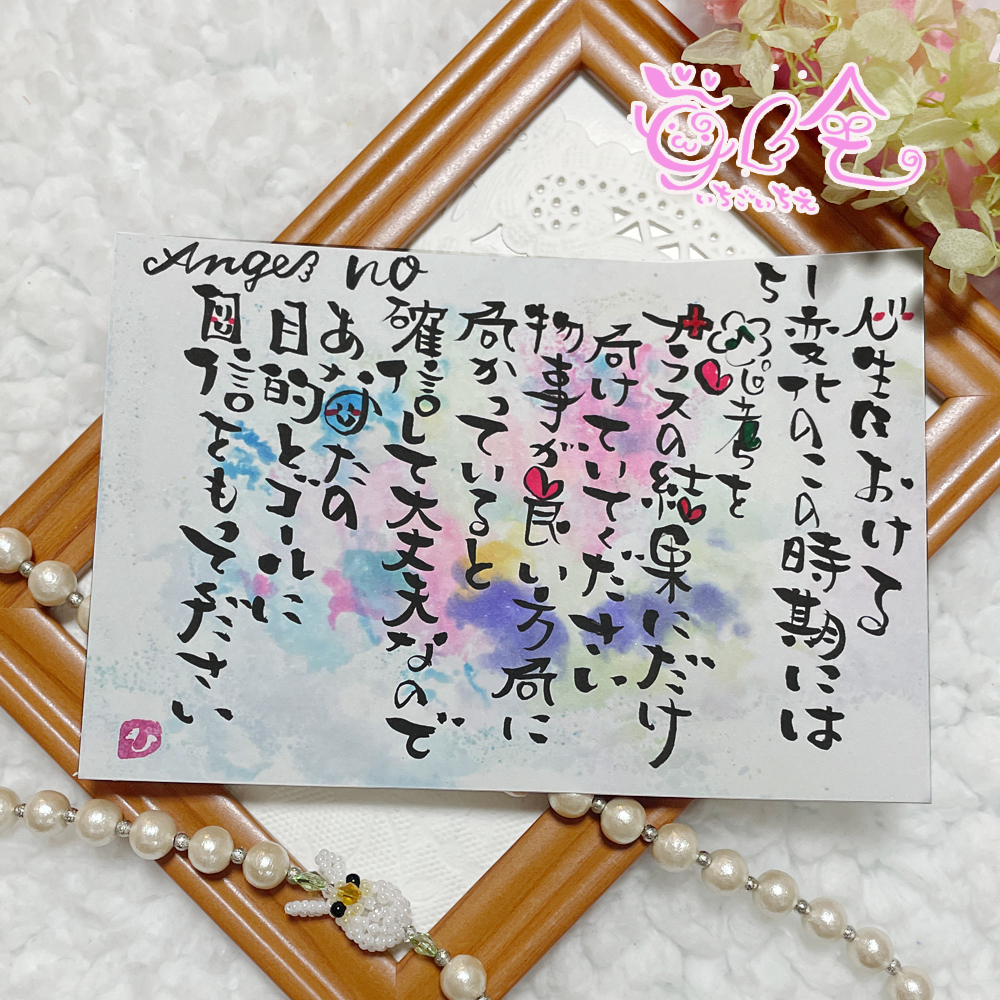 いちごいちえ
Angel no
51
人生における
変化のこの時期には
思考を
プラスの結果にだけ
向けていてください
物事が良い方向に
向かっていると
確信して大丈夫なので
あなたの
目的とゴールに
自信をもってください
ひ